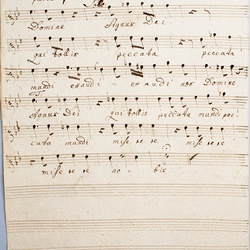 Domine Agnus Dei
qui tollis peccata peccata
mundi exaudi exaudi nos Domine
Agnus Dei qui tollis peccata mundi pec
cata mundi mise re re mise re re
mise re re no bis